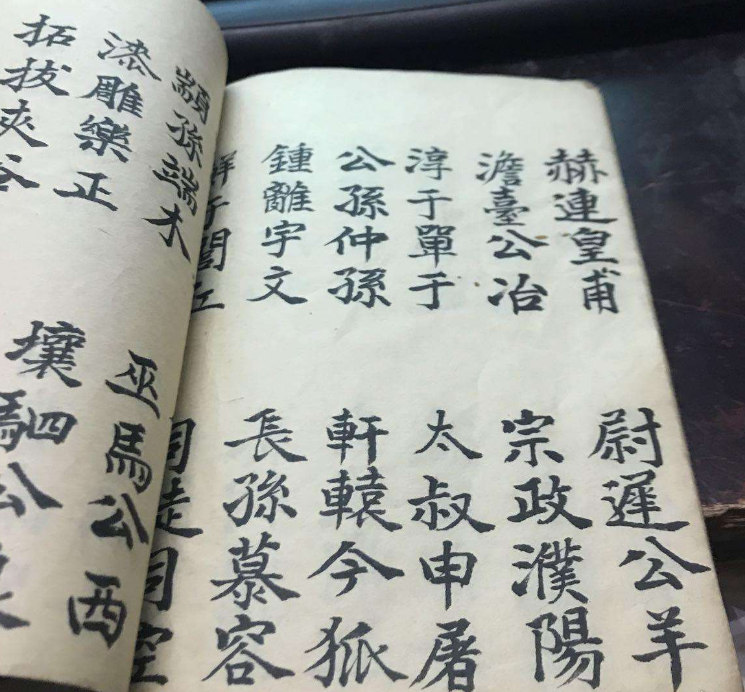 赫連皇甫
尉遲公羊
澹臺公冶
宗政濮陽
淳于單于
太叔申屠
公孫仲孫
軒轅今狐
鍾離宇文
長孫慕容
于閭丘
司徒司空
顓孫端木
巫馬公西
漆雕樂正
壤駟公
拓拔夾谷